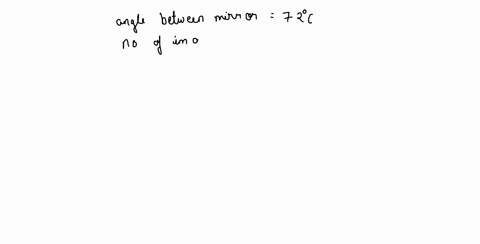 angle between mirror = 72°C
no of ima